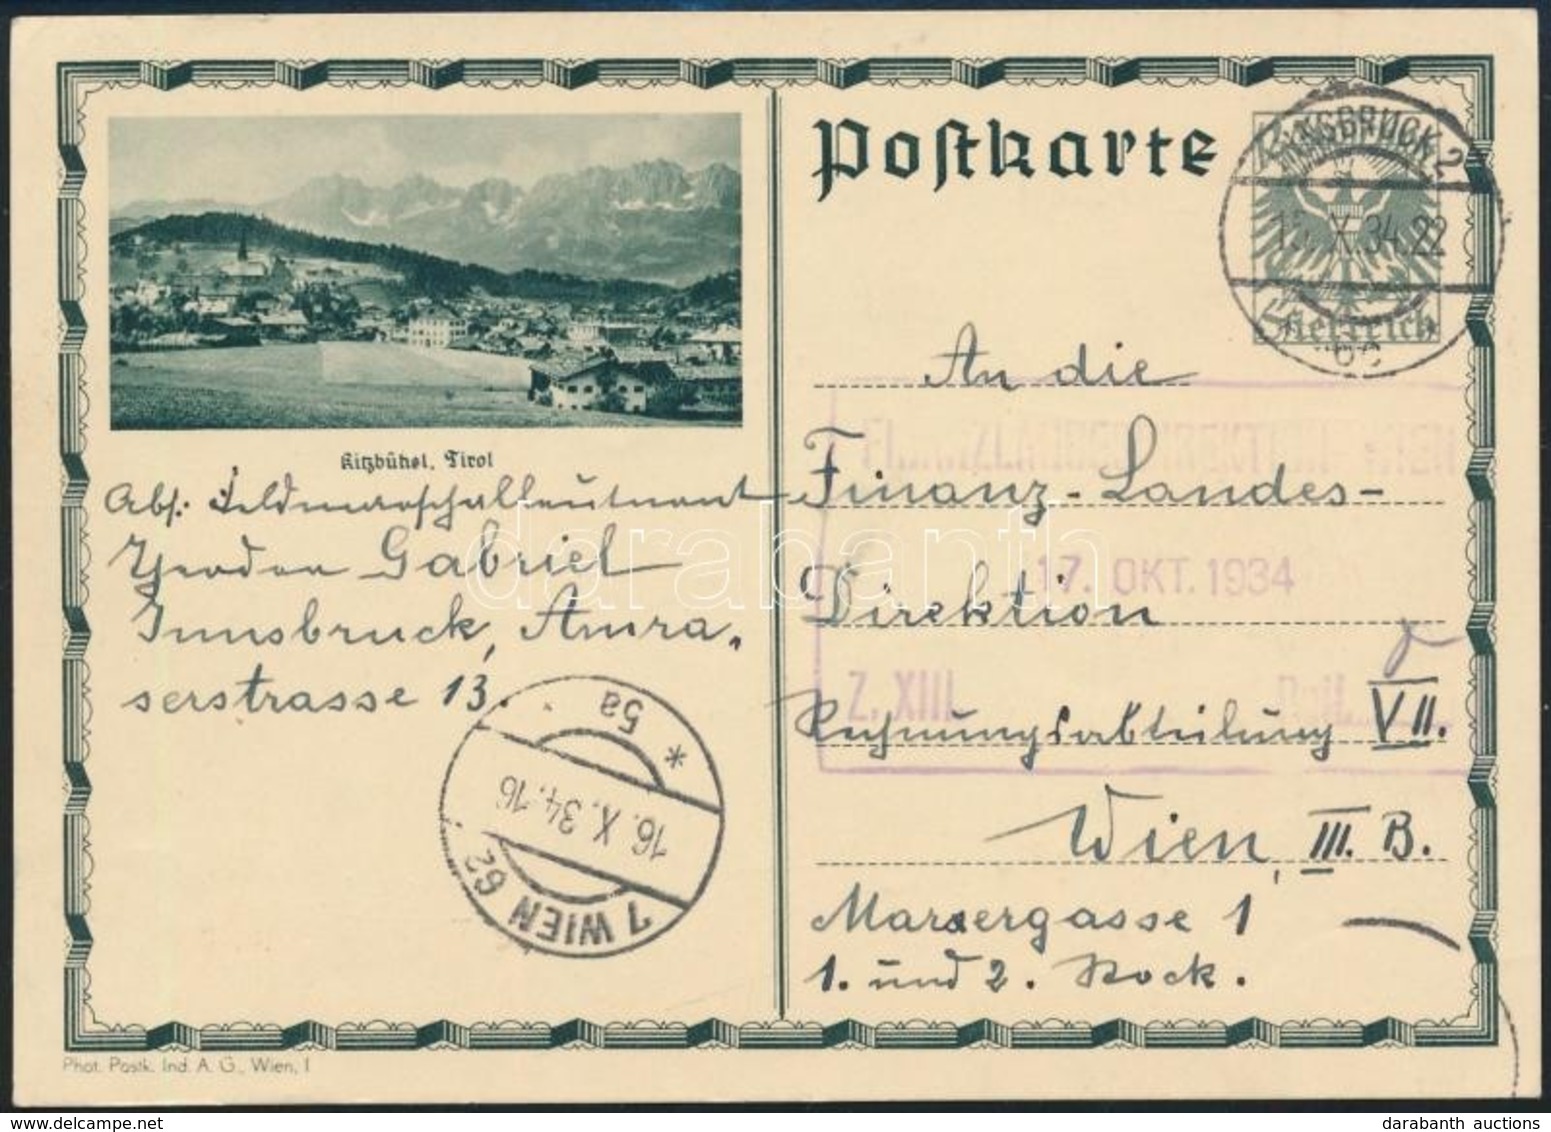 Postkarte
INNSBRUCK 2
15. X. 34. 22
6c
Oesterreich
Kitzbühel, Tirol
Abs: Feldmarschalleutnant
Theodor Gabriel
Innsbruck, Amra,
serstrasse 13.
An die
Finanz-Landes-
Direktion
Rechnungsabteilung VII.
Wien, III. B.
Marxergasse 1
1. und 2. Stock.
FINANZLANDESDIREKTION WIEN
17. OKT. 1934
Z. XIII
Beil.
* 5a
16. X. 34. 16
7 WIEN 62
darabanth
Phot. Postk. Ind. A. G., Wien, I
darabanth auctions